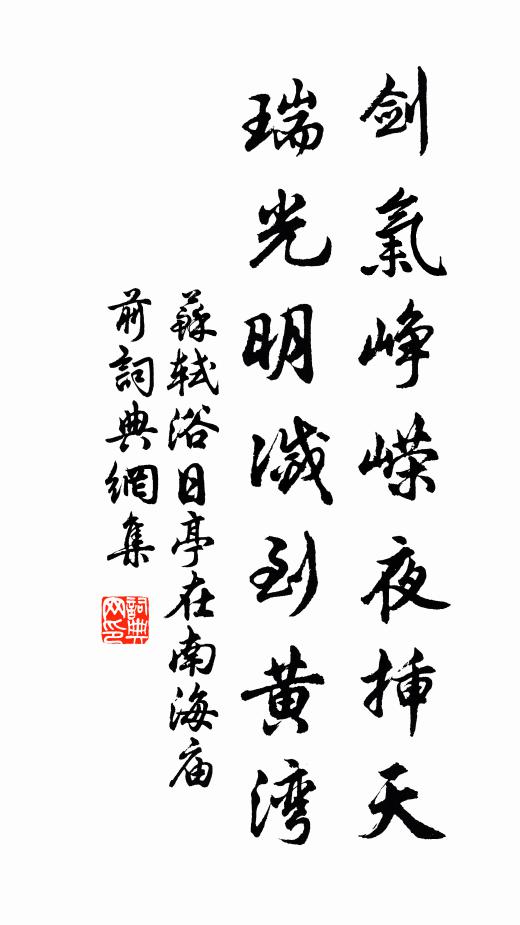 劍氣峥嶸夜插天
瑞光明滅到黄湾
蘇軾浴日亭在南海庙
前詞典網集
詞典
网印